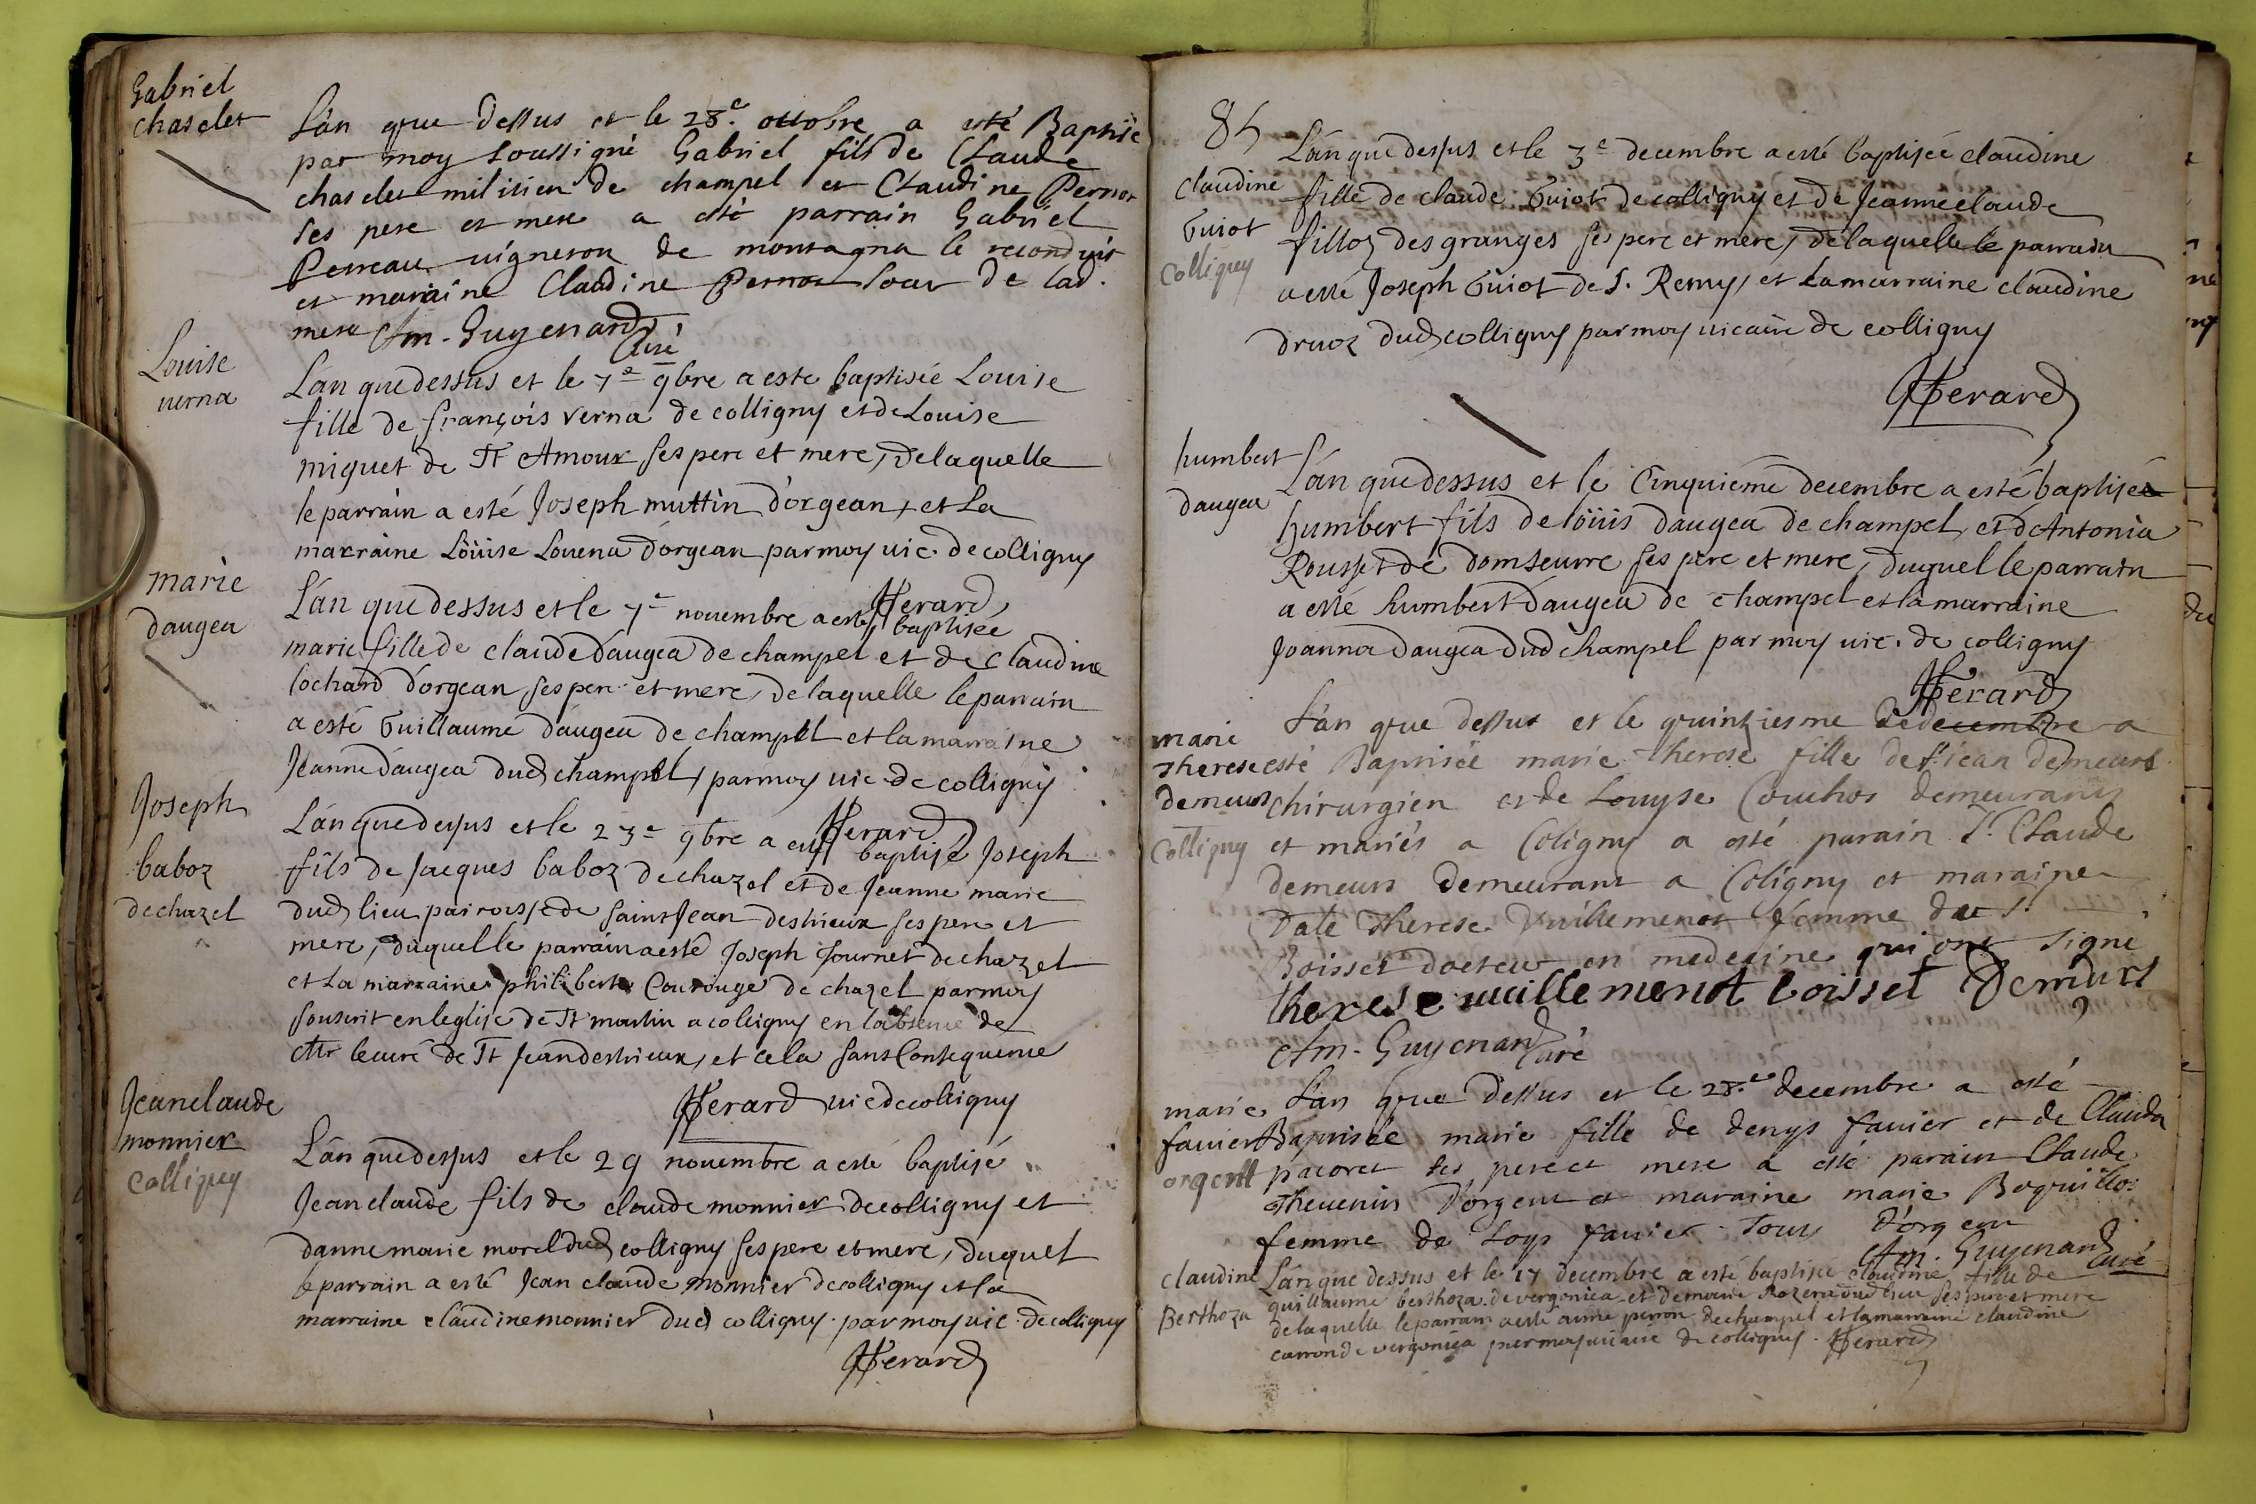 Gabriel
chaselet
L'an que dessus et le 28.e ottobre a esté Baptisé
par moy soussigné Gabriel fils de Claude
chaselet militien de champel et Claudine Pernot
ses pere et mere a esté parrain Gabriel
Perreau vigneron de montagna le reconduit
et maraine Claudine Pernot soeur de lad.
mere Am. Guyenard
Curé
Louise
verna
L'an que dessus et le 7e 9bre a este baptisée Louise
fille de françois verna de colligny et de Louise
miguet de St Amour ses pere et mere, de laquelle
le parrain a esté Joseph muttin d'orgean, et La
marraine Loüise Louena d'orgean par moy vic. de colligny
Herard
marie
daugea
L'an que dessus et le 7e novembre a esté baptisée
marie fille de claude daugea de champel et de Claudine
lochard d'orgean ses pere et mere, de laquelle le parrain
a esté Guillaume daugea de champel et la marraine
Jeanne daugea dud champel, par moy vic de colligny
Herard
Joseph
baboz
de chazel
L'an que dessus et le 23e 9bre a esté baptisé Joseph
fils de Jacques baboz de chazel et de Jeanne marie
dud lieu pairoisse de saint Jean destrieux ses pere et
mere, duquel le parrain a esté Joseph fournet de chazel
et La marraine philiberte Courouge de chazel par moy
souscrit en leglise de St martin a colligny en labsence de
Mr le curé de St Jean destrieux, et cela sans Consequence
Herard vic de colligny
Jean claude
monnier
Colligny
L'an que dessus et le 29 novembre a esté baptisé
Jean claude fils de claude monnier de colligny et
danne marie morel dud colligny ses pere et mere, duquel
le parrain a esté Jean claude monnier de colligny et la
marraine claudine monnier dud colligny par moy vic. de colligny
Herard
85
claudine
Guiot
Colligny
L'an que dessus et le 3e decembre a esté baptisée claudine
fille de claude Guiot de colligny et de Jeanne claude
filloz des granges ses pere et mere, de laquelle le parrain
a esté Joseph Guiot de S. Remy, et La marraine claudine
druoz dud colligny par moy vicaire de colligny
Herard
humbert
daugea
L'an que dessus et le Cinquiéme decembre a esté baptisée
humbert fils de loüis daugea de champel, et d'Antonia
Rousset de domseurre ses pere et mere, duquel le parrain
a esté humbert daugea de champel et la marraine
Joanna daugea dud champel par moy vic. de colligny
Herard
marie
therese
demeurs
Colligny
L'an que dessus et le quinziesme de decembre a
esté Baptisée marie therese fille de sr jean demeurs
chirurgien et de Louyse Couchos demeurants
et mariés a Coligny a esté parain Sr Claude
demeurs demeurant a Coligny et maraine
Dale therese Vuillemenot femme du sr
Boisset docteur en medecine qui ont signé
therese vuillemenot boisset Demeurs
Am. Guyenard Curé
marie
favier
orgent
L'an que dessus et le 28.e decembre a esté
Baptisée marie fille de denys favier et de Clauda
pacoret ses pere et mere a esté parain Claude
Thevenin d'orgent et maraine marie Boquillo
femme de Loys favier tous d'orgent
Am. Guyenard
curé
claudine
Berthoza
L'an que dessus et le 17 decembre a esté baptisée claudine fille de
guillaume berthoza de vergonica et de marie Rozera dud lieu ses pere et mere
de laquelle le parrain a esté aimé perron de champel et la marraine claudine
carron de vergonica par moy vicaire de colligny. Herard